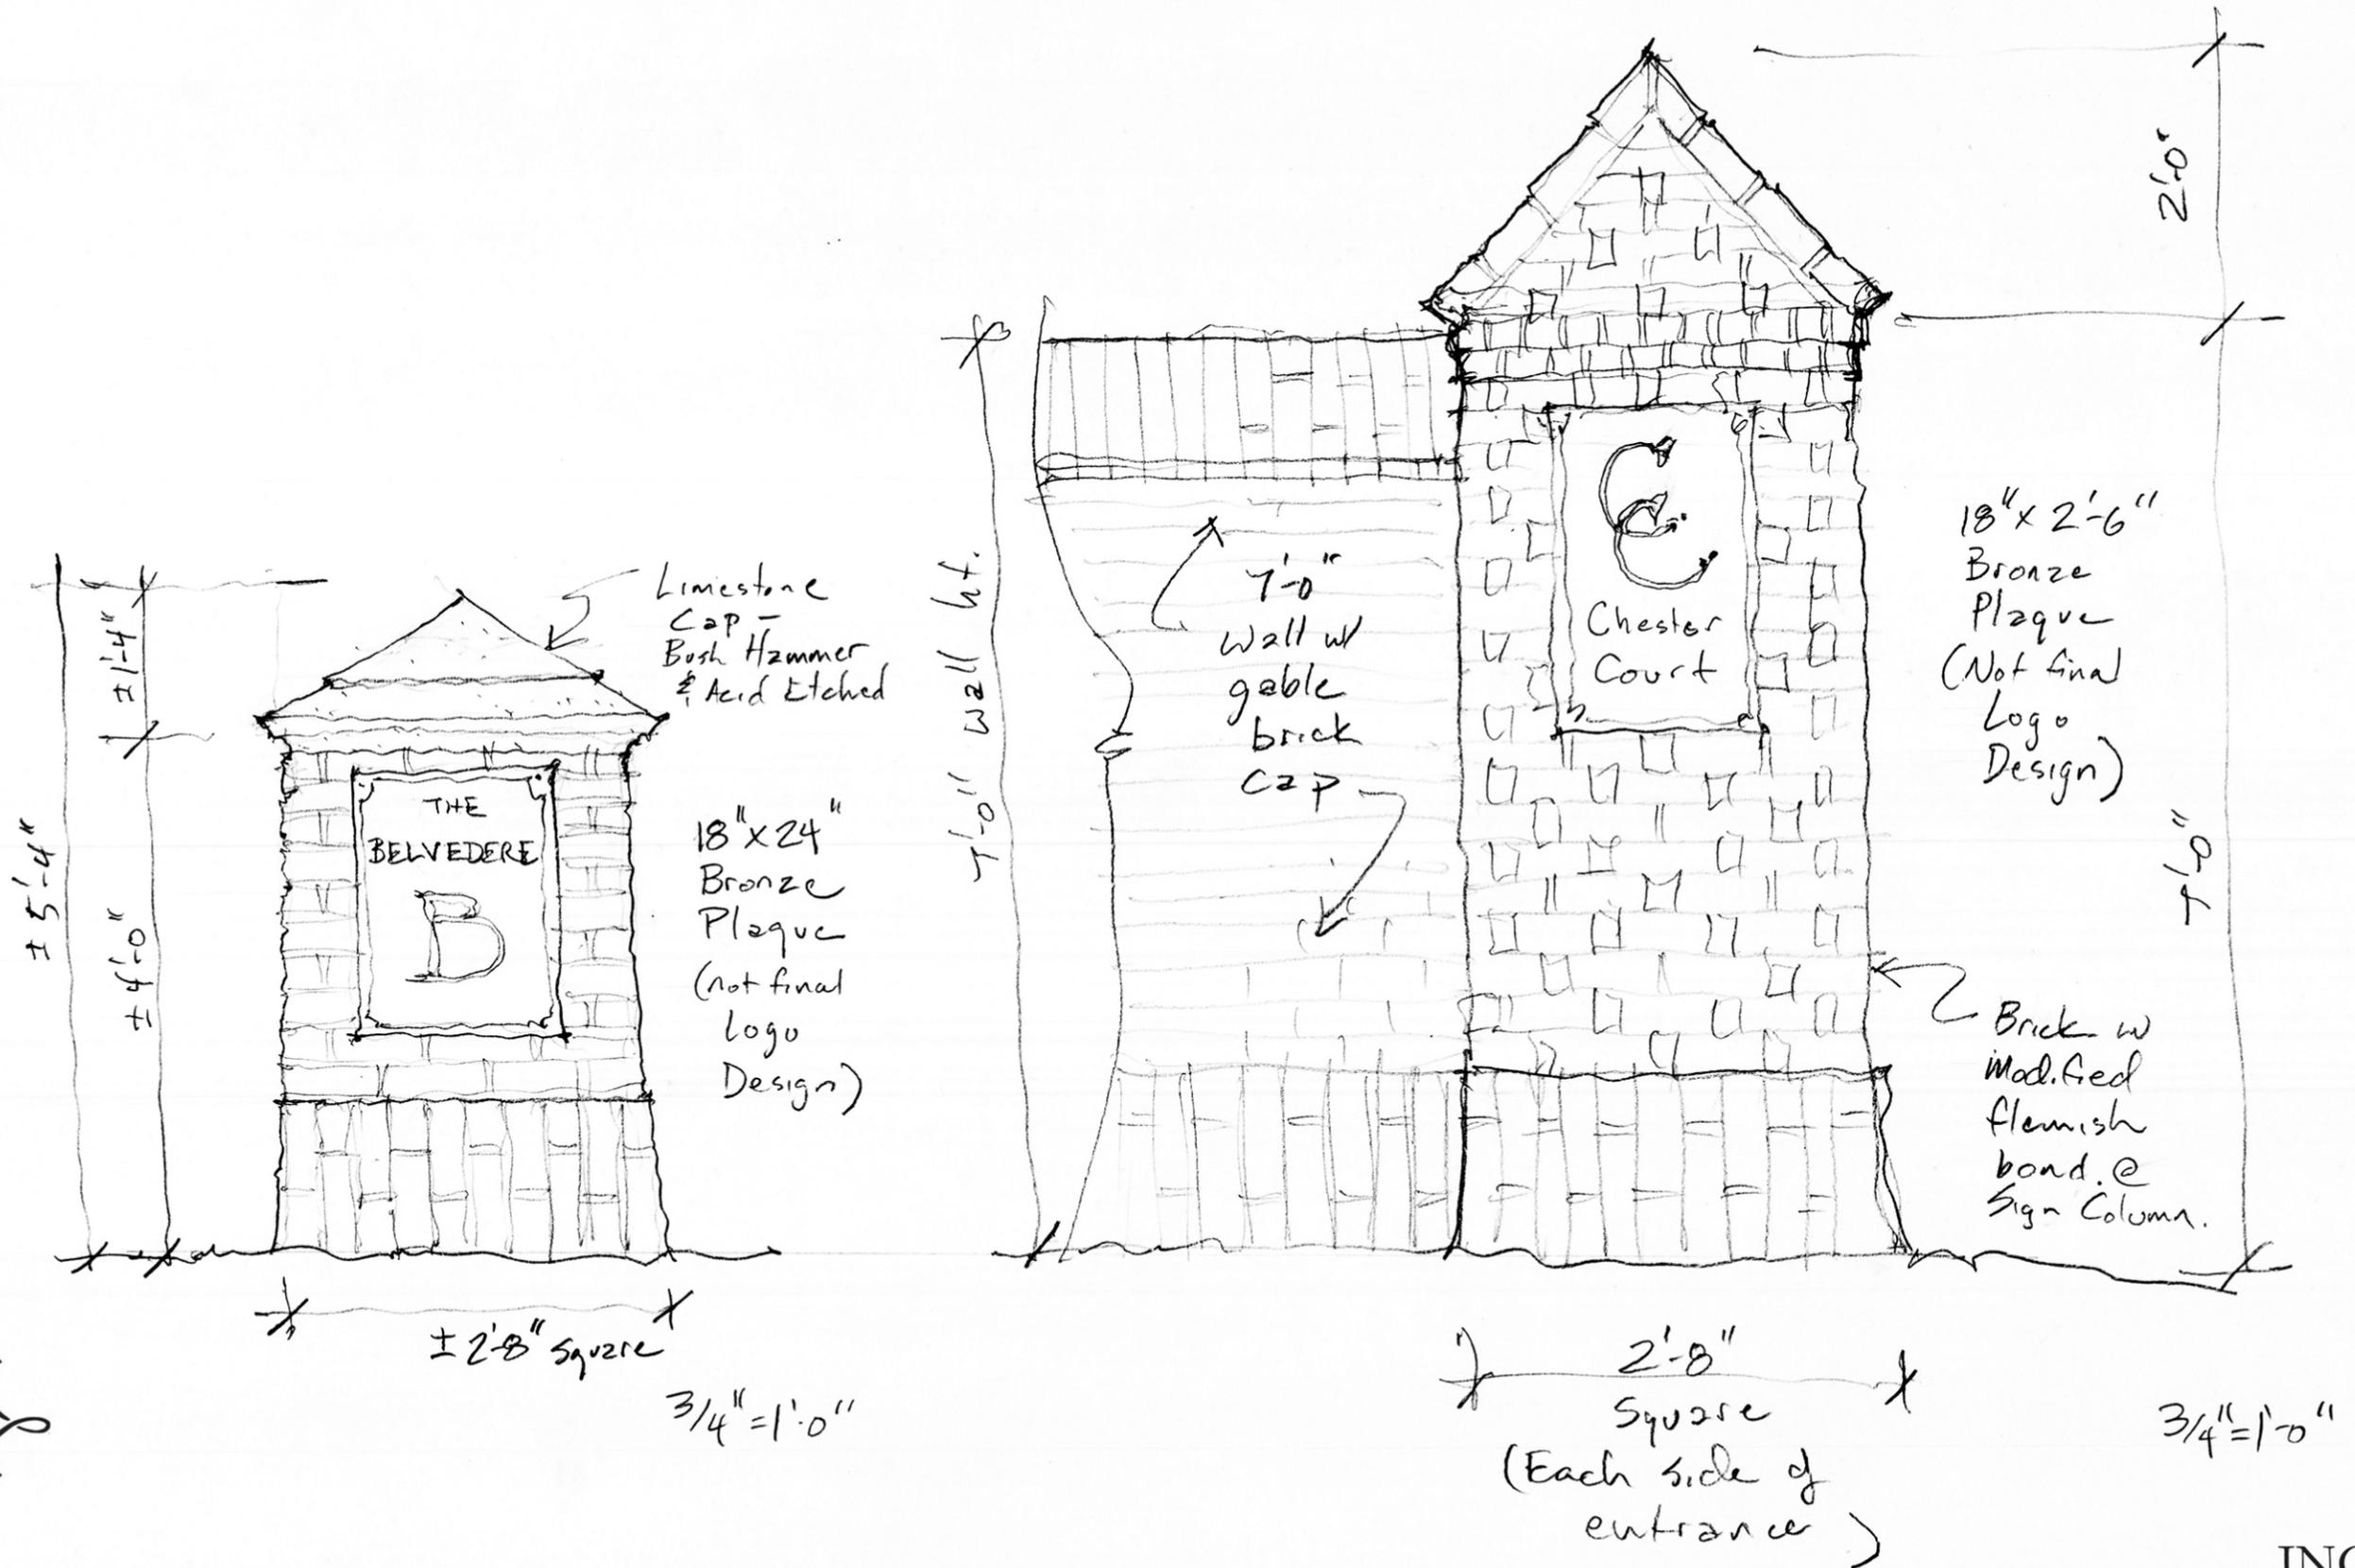 ± 5'-4"
± 1'-4"
± 4'-0"
Limestone
Cap –
Bush Hammer
& Acid Etched
THE
BELVEDERE
B
18" x 24"
Bronze
Plaque
(not final
Logo
Design)
± 2'-8" Square
3/4" = 1'-0"
7'-0" wall ht.
7'-0"
wall w/
gable
brick
cap
CC
Chester
Court
2'-0"
18" x 2'-6"
Bronze
Plaque
(Not final
Logo
Design)
7'-0"
Brick w
Modified
flemish
bond. @
Sign Column.
2'-8"
Square
(Each side of
entrance)
3/4" = 1'-0"